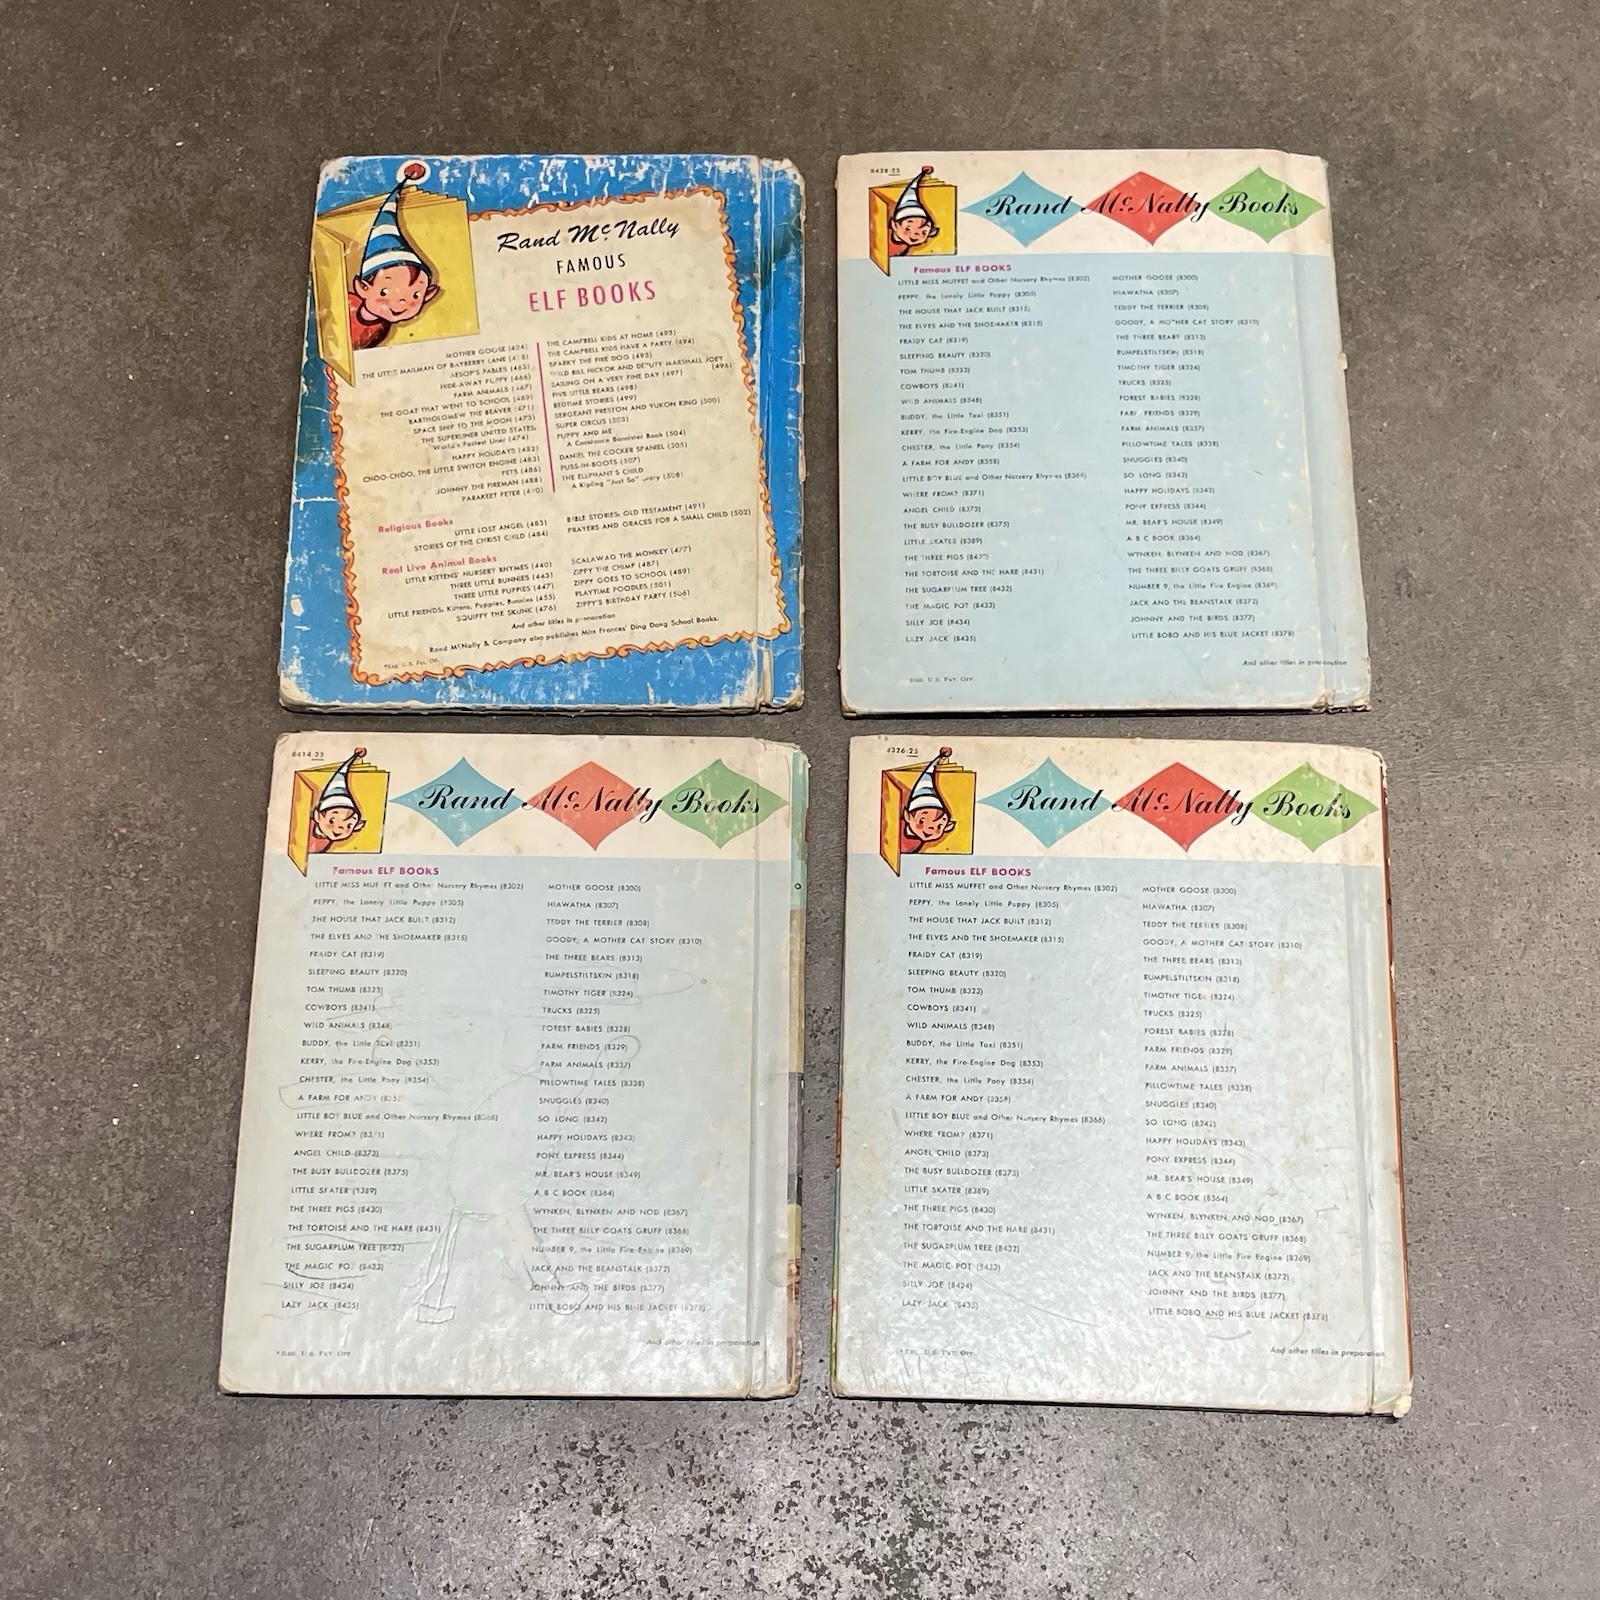 Rand McNally
FAMOUS
ELF BOOKS
MOTHER GOOSE (424)
THE LITTLE MAILMAN OF BAYBERRY LANE
AESOP'S FABLES (463)
HIDE-AWAY PUPPY (466)
FARM ANIMALS (467)
THE GOAT THAT WENT TO SCHOOL (469)
BARTHOLOMEW THE BEAVER (471)
SPACE SHIP TO THE MOON (473)
THE SUPERLINER UNITED STATES,
World's Fastest Liner (474)
HAPPY HOLIDAYS (482)
CHOO-CHOO, THE LITTLE SWITCH ENGINE (485)
PETS (486)
JOHNNY THE FIREMAN (488)
PARAKEET PETER
THE CAMPBELL KIDS AT HOME (493)
THE CAMPBELL KIDS HAVE A PARTY (494)
SPARKY THE FIRE DOG (495)
WILD BILL HICKOK AND DEPUTY MARSHALL JOEY (496)
SAILING ON A VERY FINE DAY (497)
FIVE LITTLE BEARS (498)
BEDTIME STORIES (499)
SERGEANT PRESTON AND YUKON KING (500)
SUPER CIRCUS (503)
PUPPY AND ME
A Constance Bannister Book (504)
DANIEL THE COCKER SPANIEL (505)
PUSS-IN-BOOTS (507)
THE ELEPHANT'S CHILD
A Kipling "Just So" Story (508)
Religious Books
LITTLE LOST ANGEL (483)
STORIES OF THE CHRIST CHILD (484)
BIBLE STORIES: OLD TESTAMENT (491)
PRAYERS AND GRACES FOR A SMALL CHILD (502)
Real Live Animal Books
LITTLE KITTENS' NURSERY RHYMES (440)
THREE LITTLE BUNNIES (443)
THREE LITTLE PUPPIES (447)
LITTLE FRIENDS: Kittens, Puppies, Bunnies (455)
SQUIFFY THE SKUNK (476)
SCALAWAG THE MONKEY (477)
ZIPPY THE CHIMP (487)
ZIPPY GOES TO SCHOOL (489)
PLAYTIME POODLES (501)
ZIPPY'S BIRTHDAY PARTY (506)
And other titles in preparation
Rand McNally & Company also publishes Miss Frances' Ding Dong School Books.
*Reg. U.S. Pat. Off.
8438:25
Rand McNally Books
Famous ELF BOOKS
LITTLE MISS MUFFET and Other Nursery Rhymes (8302)
PEPPY, the Lonely Little Puppy (8305)
THE HOUSE THAT JACK BUILT (8312)
THE ELVES AND THE SHOEMAKER (8315)
FRAIDY CAT (8319)
SLEEPING BEAUTY (8320)
TOM THUMB (8323)
COWBOYS (8341)
WILD ANIMALS (8348)
BUDDY, the Little Taxi (8351)
KERRY, the Fire-Engine Dog (8353)
CHESTER, the Little Pony (8354)
A FARM FOR ANDY (8358)
LITTLE BOY BLUE and Other Nursery Rhymes (8366)
WHERE FROM? (8371)
ANGEL CHILD (8373)
THE BUSY BULLDOZER (8375)
LITTLE SKATER (8389)
THE THREE PIGS (8430)
THE TORTOISE AND THE HARE (8431)
THE SUGARPLUM TREE (8432)
THE MAGIC POT (8433)
SILLY JOE (8434)
LAZY JACK (8435)
MOTHER GOOSE (8300)
HIAWATHA (8307)
TEDDY THE TERRIER (8308)
GOODY, A MOTHER CAT STORY (8310)
THE THREE BEARS (8313)
RUMPELSTILTSKIN (8318)
TIMOTHY TIGER (8324)
TRUCKS (8325)
FOREST BABIES (8328)
FARM FRIENDS (8329)
FARM ANIMALS (8337)
PILLOWTIME TALES (8338)
SNUGGLES (8340)
SO LONG (8342)
HAPPY HOLIDAYS (8343)
PONY EXPRESS (8344)
MR. BEAR'S HOUSE (8349)
A B C BOOK (8364)
WYNKEN, BLYNKEN AND NOD (8367)
THE THREE BILLY GOATS GRUFF (8368)
NUMBER 9, the Little Fire Engine (8369)
JACK AND THE BEANSTALK (8372)
JOHNNY AND THE BIRDS (8377)
LITTLE BOBO AND HIS BLUE JACKET (8378)
And other titles in preparation
REG. U.S. PAT. OFF.
8414:25
Rand McNally Books
Famous ELF BOOKS
LITTLE MISS MUFFET and Other Nursery Rhymes (8302)
PEPPY, the Lonely Little Puppy (8305)
THE HOUSE THAT JACK BUILT (8312)
THE ELVES AND THE SHOEMAKER (8315)
FRAIDY CAT (8319)
SLEEPING BEAUTY (8320)
TOM THUMB (8323)
COWBOYS (8341)
WILD ANIMALS (8348)
BUDDY, the Little Taxi (8351)
KERRY, the Fire-Engine Dog (8353)
CHESTER, the Little Pony (8354)
A FARM FOR ANDY (8358)
LITTLE BOY BLUE and Other Nursery Rhymes (8366)
WHERE FROM? (8371)
ANGEL CHILD (8373)
THE BUSY BULLDOZER (8375)
LITTLE SKATER (8389)
THE THREE PIGS (8430)
THE TORTOISE AND THE HARE (8431)
THE SUGARPLUM TREE (8432)
THE MAGIC POT (8433)
SILLY JOE (8434)
LAZY JACK (8435)
MOTHER GOOSE (8300)
HIAWATHA (8307)
TEDDY THE TERRIER (8308)
GOODY, A MOTHER CAT STORY (8310)
THE THREE BEARS (8313)
RUMPELSTILTSKIN (8318)
TIMOTHY TIGER (8324)
TRUCKS (8325)
FOREST BABIES (8328)
FARM FRIENDS (8329)
FARM ANIMALS (8337)
PILLOWTIME TALES (8338)
SNUGGLES (8340)
SO LONG (8342)
HAPPY HOLIDAYS (8343)
PONY EXPRESS (8344)
MR. BEAR'S HOUSE (8349)
A B C BOOK (8364)
WYNKEN, BLYNKEN AND NOD (8367)
THE THREE BILLY GOATS GRUFF (8368)
NUMBER 9, the Little Fire Engine (8369)
JACK AND THE BEANSTALK (8372)
JOHNNY AND THE BIRDS (8377)
LITTLE BOBO AND HIS BLUE JACKET (8378)
And other titles in preparation
*REG. U.S. PAT. OFF.
8326:25
Rand McNally Books
Famous ELF BOOKS
LITTLE MISS MUFFET and Other Nursery Rhymes (8302)
PEPPY, the Lonely Little Puppy (8305)
THE HOUSE THAT JACK BUILT (8312)
THE ELVES AND THE SHOEMAKER (8315)
FRAIDY CAT (8319)
SLEEPING BEAUTY (8320)
TOM THUMB (8323)
COWBOYS (8341)
WILD ANIMALS (8348)
BUDDY, the Little Taxi (8351)
KERRY, the Fire-Engine Dog (8353)
CHESTER, the Little Pony (8354)
A FARM FOR ANDY (8358)
LITTLE BOY BLUE and Other Nursery Rhymes (8366)
WHERE FROM? (8371)
ANGEL CHILD (8373)
THE BUSY BULLDOZER (8375)
LITTLE SKATER (8389)
THE THREE PIGS (8430)
THE TORTOISE AND THE HARE (8431)
THE SUGARPLUM TREE (8432)
THE MAGIC POT (8433)
SILLY JOE (8434)
LAZY JACK (8435)
MOTHER GOOSE (8300)
HIAWATHA (8307)
TEDDY THE TERRIER (8308)
GOODY, A MOTHER CAT STORY (8310)
THE THREE BEARS (8313)
RUMPELSTILTSKIN (8318)
TIMOTHY TIGER (8324)
TRUCKS (8325)
FOREST BABIES (8328)
FARM FRIENDS (8329)
FARM ANIMALS (8337)
PILLOWTIME TALES (8338)
SNUGGLES (8340)
SO LONG (8342)
HAPPY HOLIDAYS (8343)
PONY EXPRESS (8344)
MR. BEAR'S HOUSE (8349)
A B C BOOK (8364)
WYNKEN, BLYNKEN AND NOD (8367)
THE THREE BILLY GOATS GRUFF (8368)
NUMBER 9, the Little Fire Engine (8369)
JACK AND THE BEANSTALK (8372)
JOHNNY AND THE BIRDS (8377)
LITTLE BOBO AND HIS BLUE JACKET (8378)
And other titles in preparation
*REG. U.S. PAT. OFF.